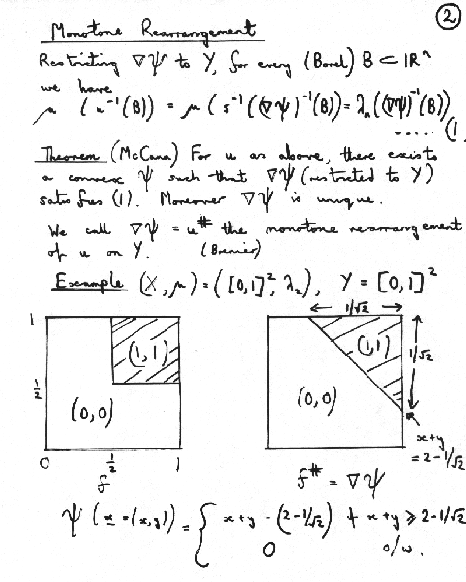 ②
Monotone Rearrangement
Restricting ∇ψ to Y, for every (Borel) B ⊂ ℝⁿ
we have
μ (u⁻¹(B)) = μ (s⁻¹((∇ψ)⁻¹(B)) = λₙ((∇ψ)⁻¹(B))
..... (1
Theorem (McCann) For u as above, there exists
a convex ψ such that ∇ψ (restricted to Y)
satisfies (1). Moreover ∇ψ is unique.
We call ∇ψ = u# the monotone rearrangement
of u on Y. (Brenier)
Example (X, μ) = ([0,1]², λ₂), Y = [0,1]²
1/√2
1
(1,1)
(1,1)
1/√2
1/2
(0,0)
(0,0)
x+y
= 2-1/√2
0
1/2
1
f
f# = ∇ψ
ψ (x = (x,y)) = { x+y - (2-1/√2) if x+y ≥ 2-1/√2
0 o/w.